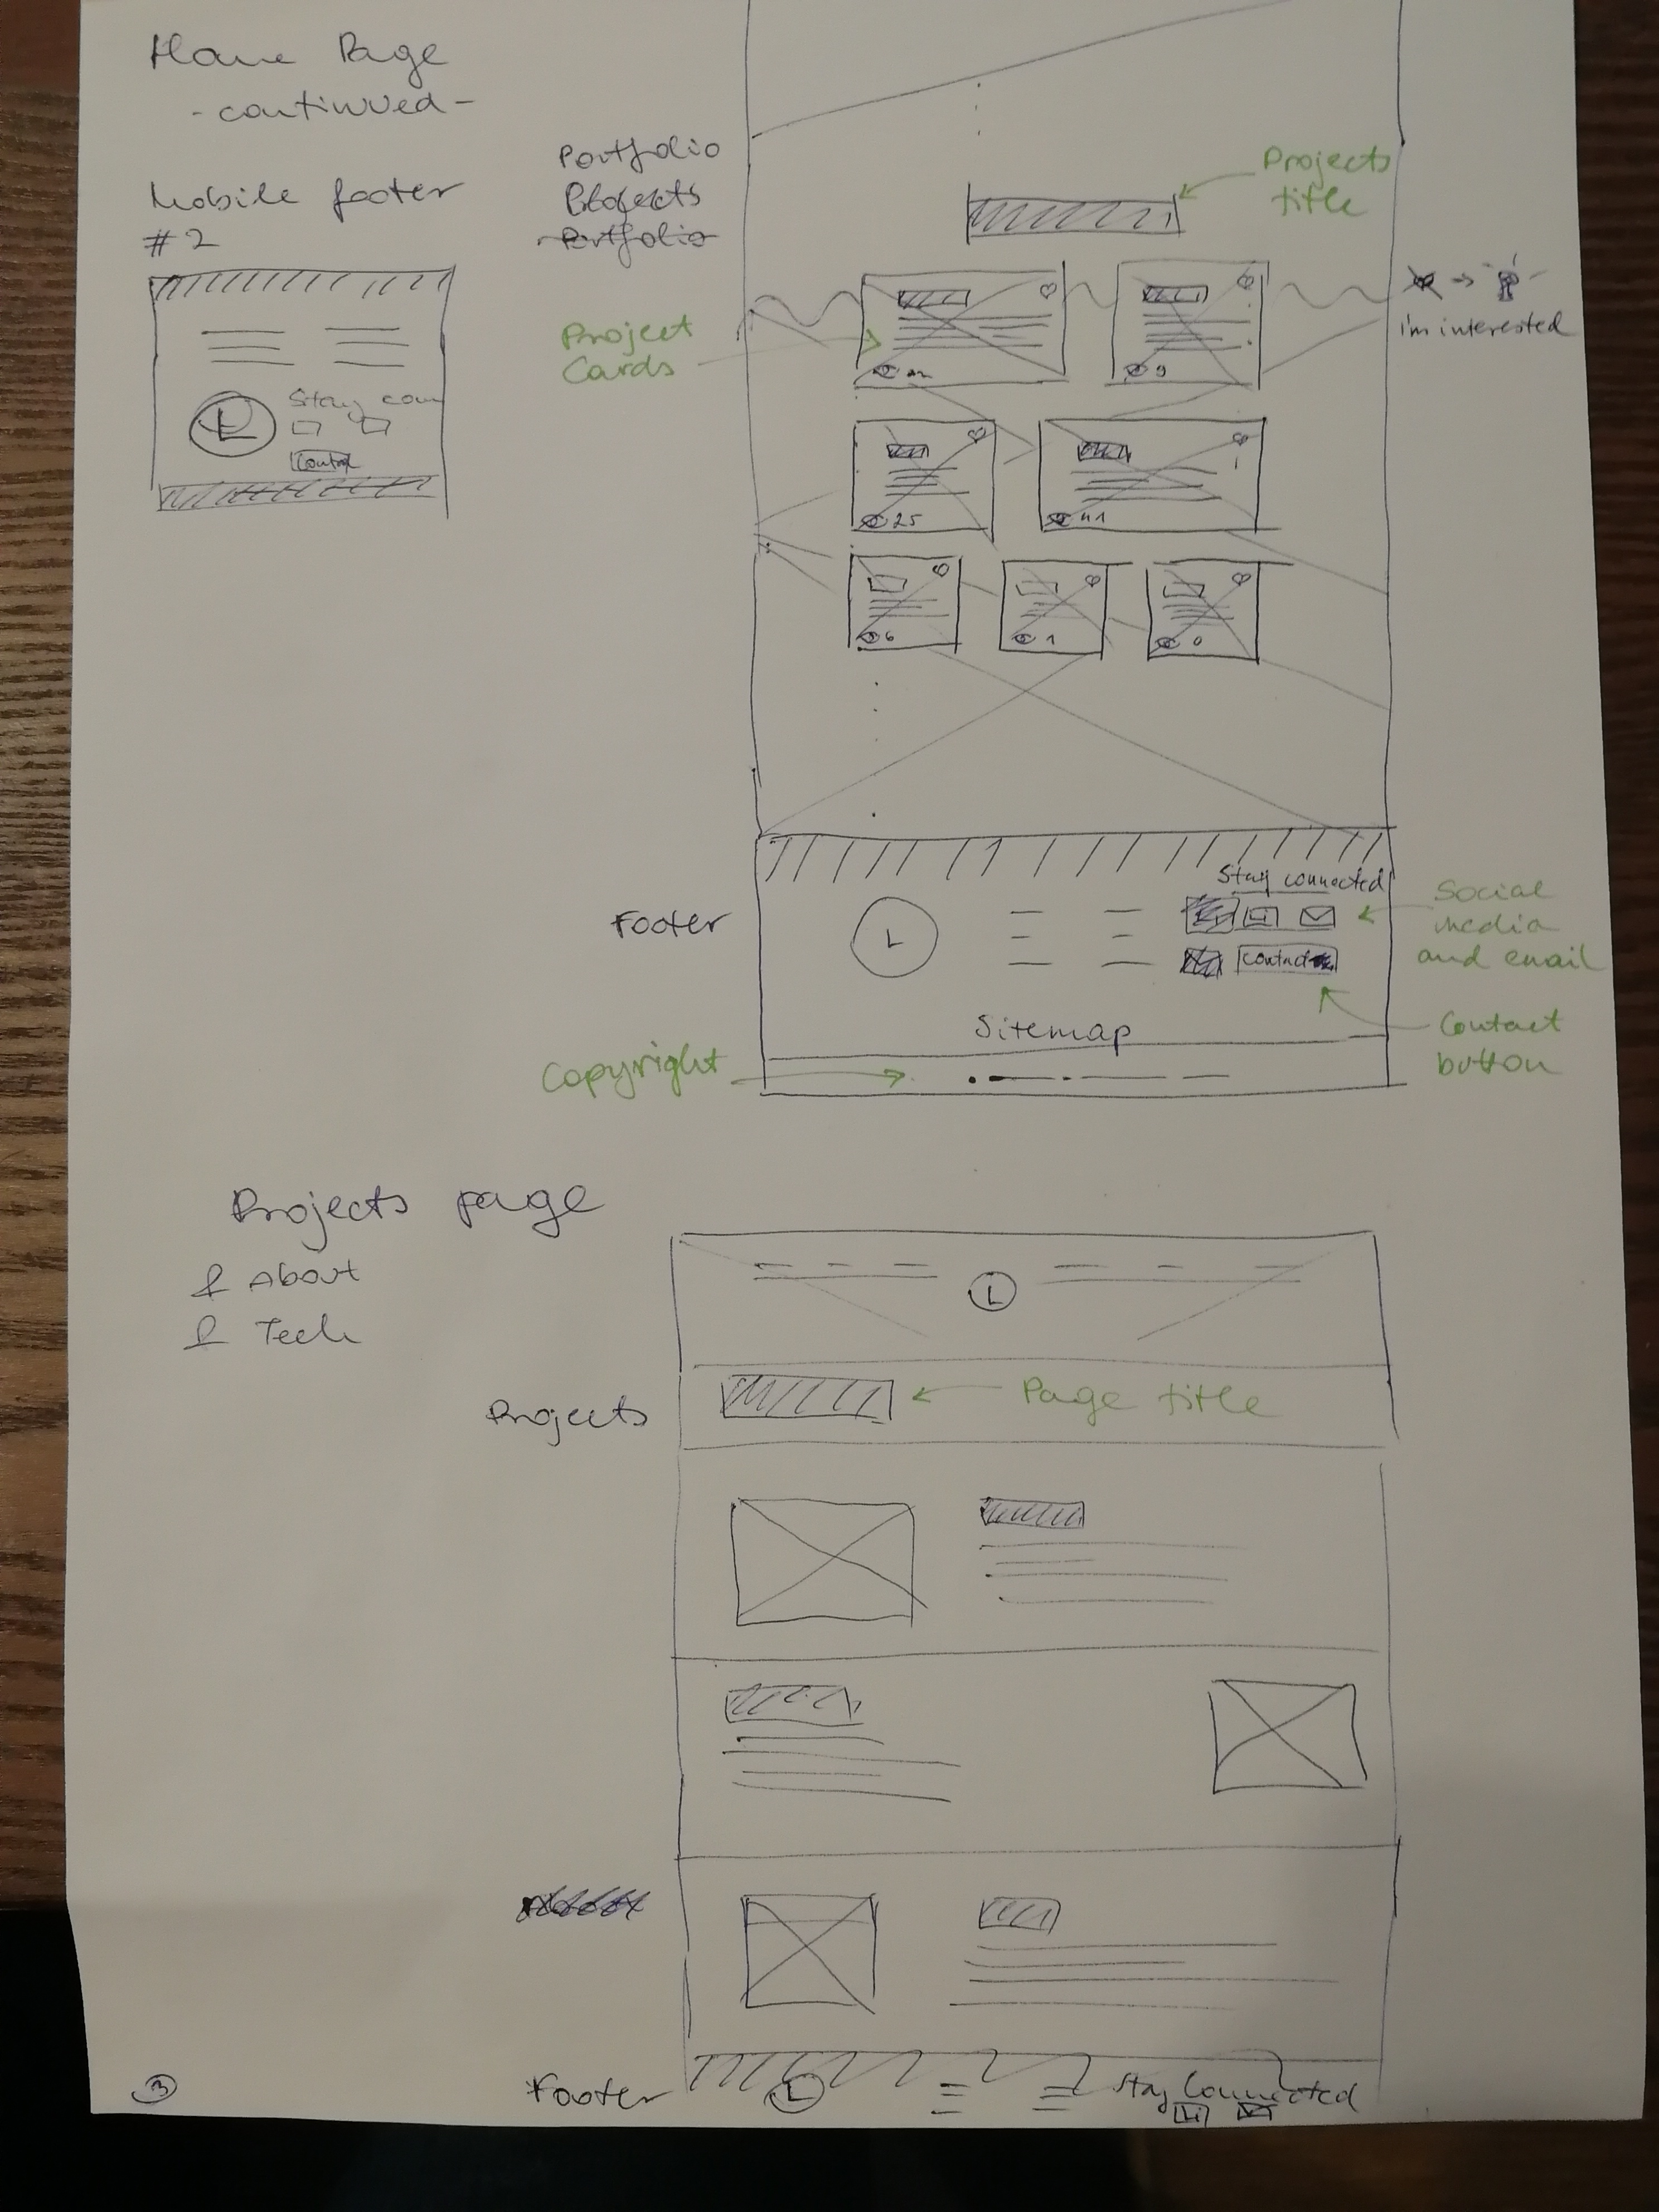 Home Page
- continued -
Mobile footer
#2
L
Stay con
Contac
Portfolio
Projects
Portfolio
Projects
title
Project
Cards
I'm interested
9
25
41
6
1
0
Footer
L
Stay connected
Contact
Social
media
and email
Contact
button
Sitemap
Copyright
Projects page
& About
& Tech
L
Projects
Page title
Footer
L
Stay Connected
Li
3